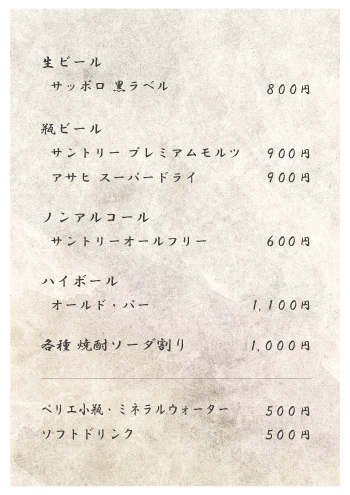 生ビール
サッポロ 黒ラベル 800円
瓶ビール
サントリー プレミアムモルツ 900円
アサヒ スーパードライ 900円
ノンアルコール
サントリーオールフリー 600円
ハイボール
オールド・パー 1,100円
各種 焼酎ソーダ割り 1,000円
ペリエ小瓶・ミネラルウォーター 500円
ソフトドリンク 500円